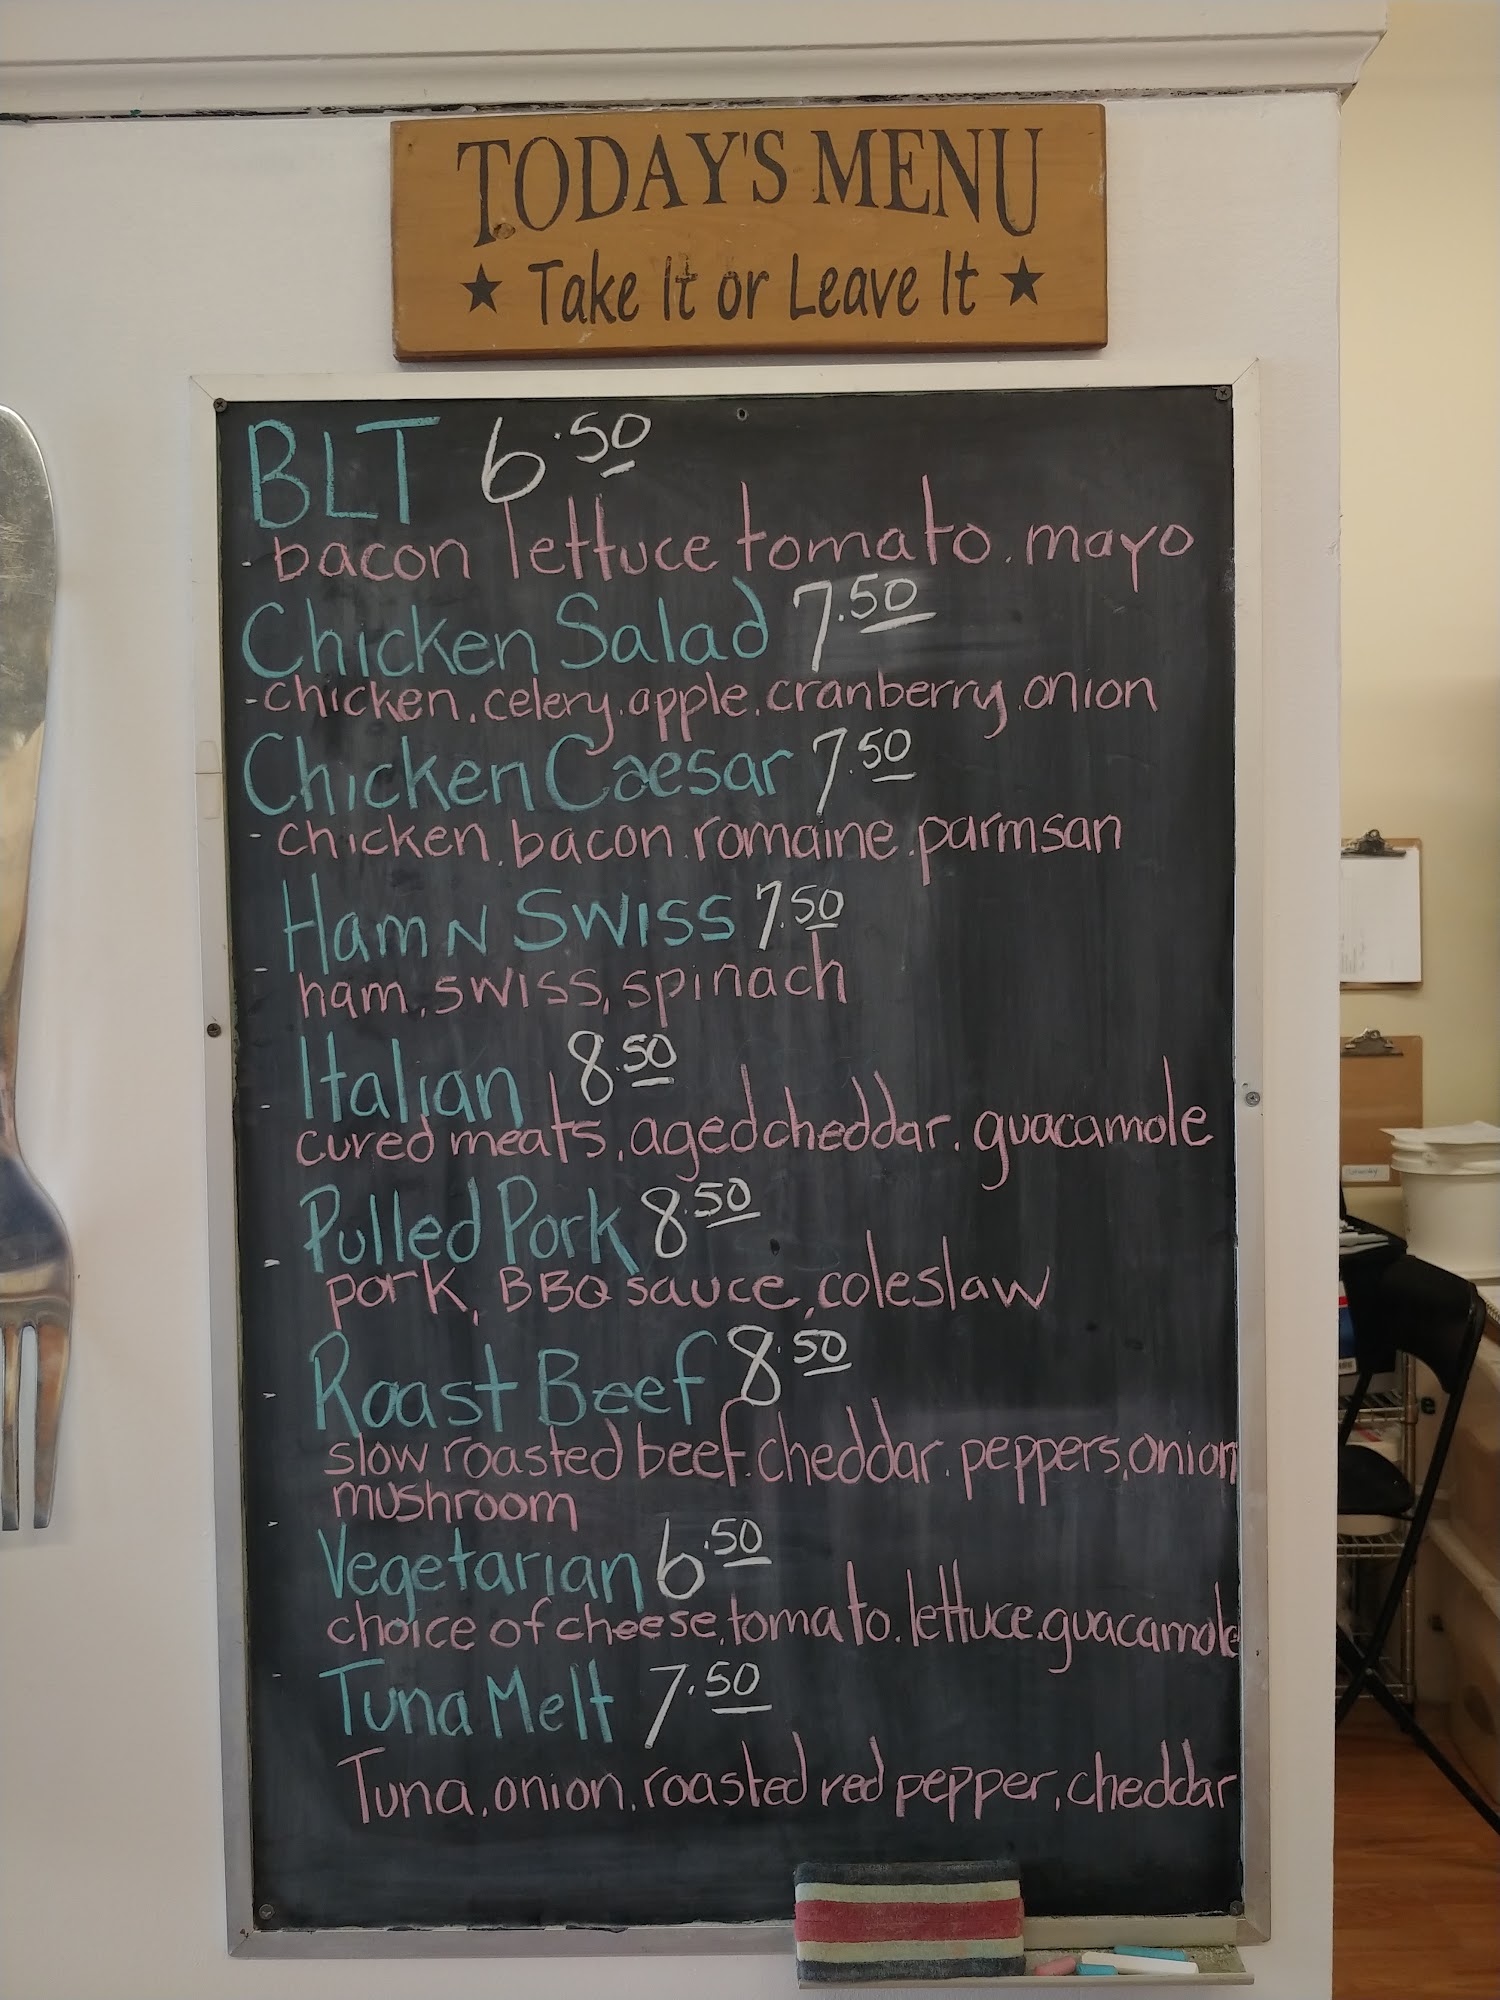 TODAY'S MENU
★ Take It or Leave It ★
BLT 6.50
- bacon lettuce tomato. mayo
Chicken Salad 7.50
- chicken. celery. apple. cranberry. onion
Chicken Caesar 7.50
- chicken. bacon. romaine. parmsan
Ham N SWISS 7.50
- ham. swiss, spinach
Italian 8.50
- cured meats. aged cheddar. guacamole
Pulled Pork 8.50
- pork, BBQ sauce, coleslaw
Roast Beef 8.50
- slow roasted beef. cheddar. peppers, onion
mushroom
Vegetarian 6.50
- choice of cheese, tomato. lettuce. guacamole
Tuna Melt 7.50
- Tuna. onion. roasted red pepper. cheddar